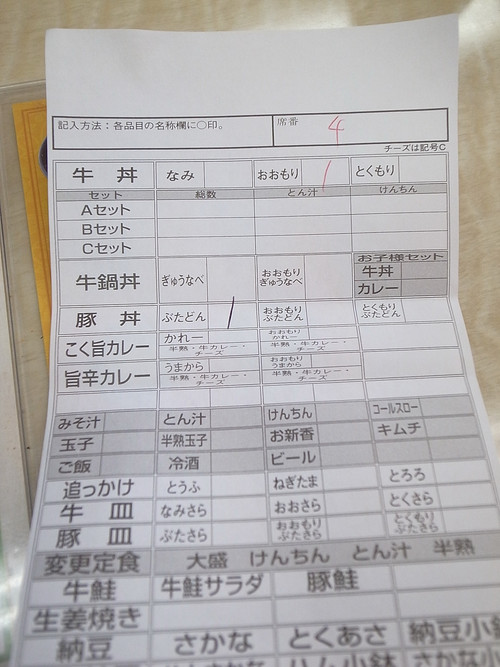 記入方法：各品目の名称欄に○印。 席番 4
チーズは記号C
牛 丼 なみ おおもり / とくもり
セット 総数 とん汁 けんちん
Aセット
Bセット
Cセット
お子様セット
牛鍋丼 ぎゅうなべ おおもり ぎゅうなべ 牛丼
カレー
豚 丼 ぶたどん / おおもり ぶたどん とくもり ぶたどん
こく旨カレー かれー おおもり かれー
半熟・牛カレー・チーズ 半熟・牛カレー・チーズ
旨辛カレー うまから おおもり うまから
半熟・牛カレー・チーズ 半熟・牛カレー・チーズ
みそ汁 とん汁 けんちん コールスロー
玉子 半熟玉子 お新香 キムチ
ご飯 冷酒 ビール
追っかけ とうふ ねぎたま とろろ
牛 皿 なみさら おおさら とくさら
豚 皿 ぶたさら おおもり ぶたさら とくもり ぶたさら
変更定食 大盛 けんちん とん汁 半熟
牛鮭 牛鮭サラダ 豚鮭
生姜焼き
納豆 さかな とくあさ 納豆小鉢